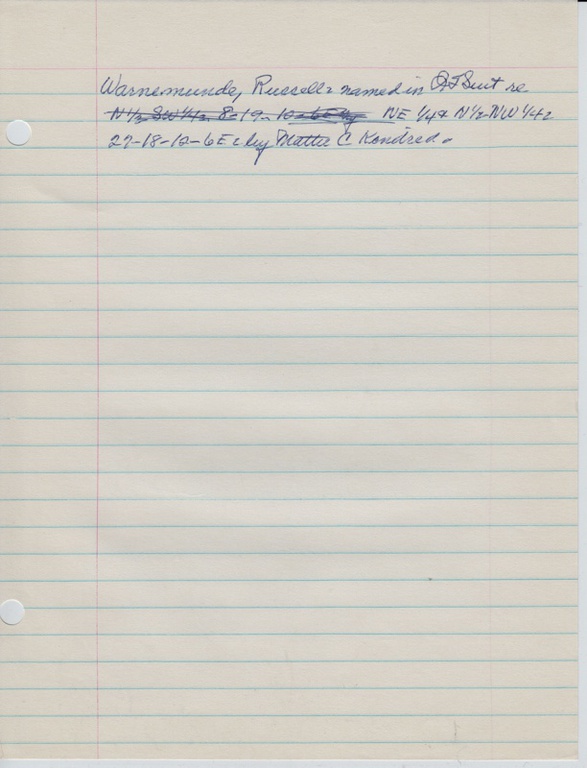 Warnemunde, Russell: named in QT Suit re
N½ SW¼, 8-19-12-6E by NE ¼ & N½-NW ¼
27-18-12-6E by Mattie C. Kendred.